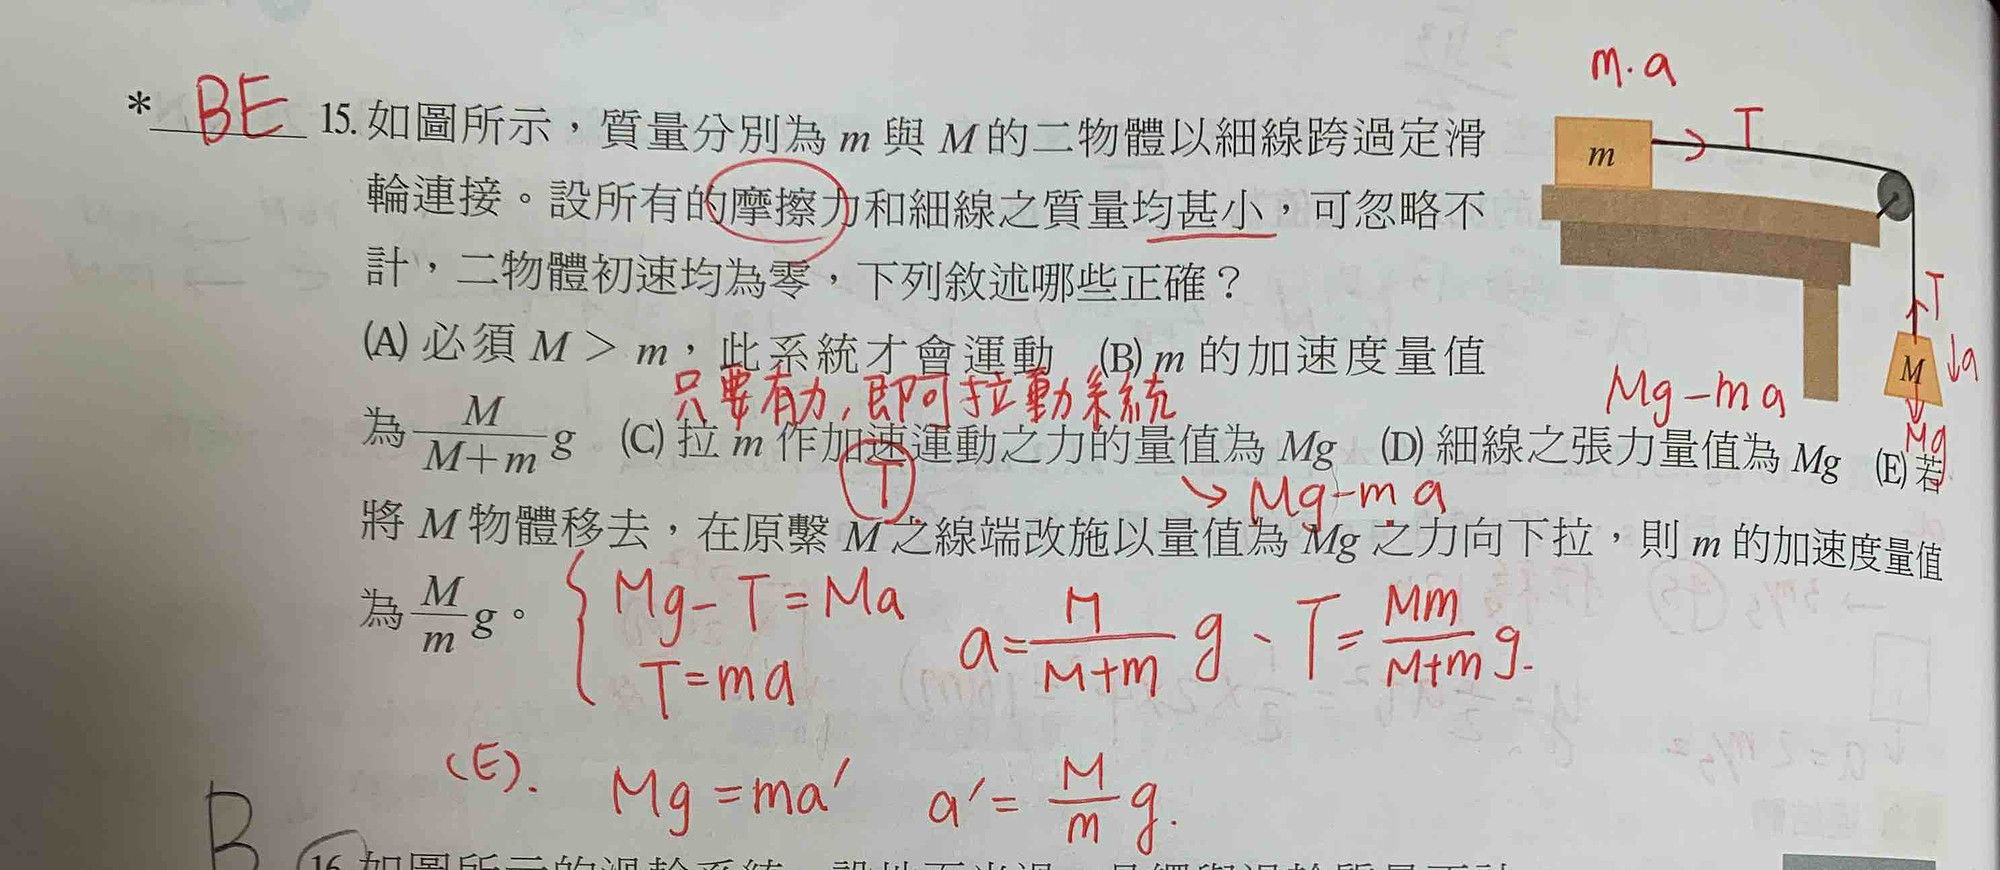 m.a
* BE 15. 如圖所示，質量分別為 m 與 M 的二物體以細線跨過定滑
m T
輪連接。設所有的摩擦力和細線之質量均甚小，可忽略不
計，二物體初速均為零，下列敘述哪些正確？
T
(A) 必須 M > m，此系統才會運動 (B) m 的加速度量值
M ↓a
只要有力，即可拉動系統
Mg-ma
Mg
為 M/(M+m) g (C) 拉 m 作加速運動之力的量值為 Mg (D) 細線之張力量值為 Mg (E) 若
T
↘ Mg-ma
將 M 物體移去，在原繫 M 之線端改施以量值為 Mg 之力向下拉，則 m 的加速度量值
為 M/m g。
Mg-T=Ma
T=ma
a=M/(M+m) g、T=Mm/(M+m) g.
(E). Mg=ma' a'=M/m g.
B